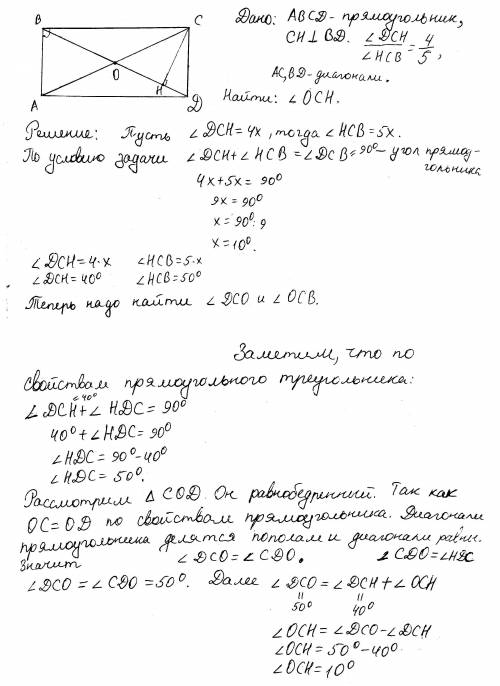 B C
O
H
A D
Дано: ABCD - прямоугольник,
CH⊥BD. ∠DCH/∠HCB = 4/5,
AC, BD - диагонали.
Найти: ∠OCH.
Решение: Пусть ∠DCH=4x, тогда ∠HCB=5x.
По условию задачи ∠DCH+∠HCB=∠DCB=90° - угол прямоу-
гольника
4x+5x=90°
9x=90°
x=90°:9
x=10°.
∠DCH=4·x ∠HCB=5·x
∠DCH=40° ∠HCB=50°
Теперь надо найти ∠DCO и ∠OCB.
Заметим, что по
свойствам прямоугольного треугольника:
=40°
∠DCH+∠HDC=90°
40°+∠HDC=90°
∠HDC=90°-40°
∠HDC=50°.
Рассмотрим ΔCOD. Он равнобедренний. Так как
OC=OD по свойствам прямоугольника. Диагонали
прямоугольника делятся пополам и диагонали равны.
Значит ∠DCO=∠CDO. ∠CDO=∠HDC
∠DCO=∠CDO=50°. Далее ∠DCO=∠DCH+∠OCH
= =
50° 40°
∠OCH=∠DCO-∠DCH
∠OCH=50°-40°
∠OCH=10°